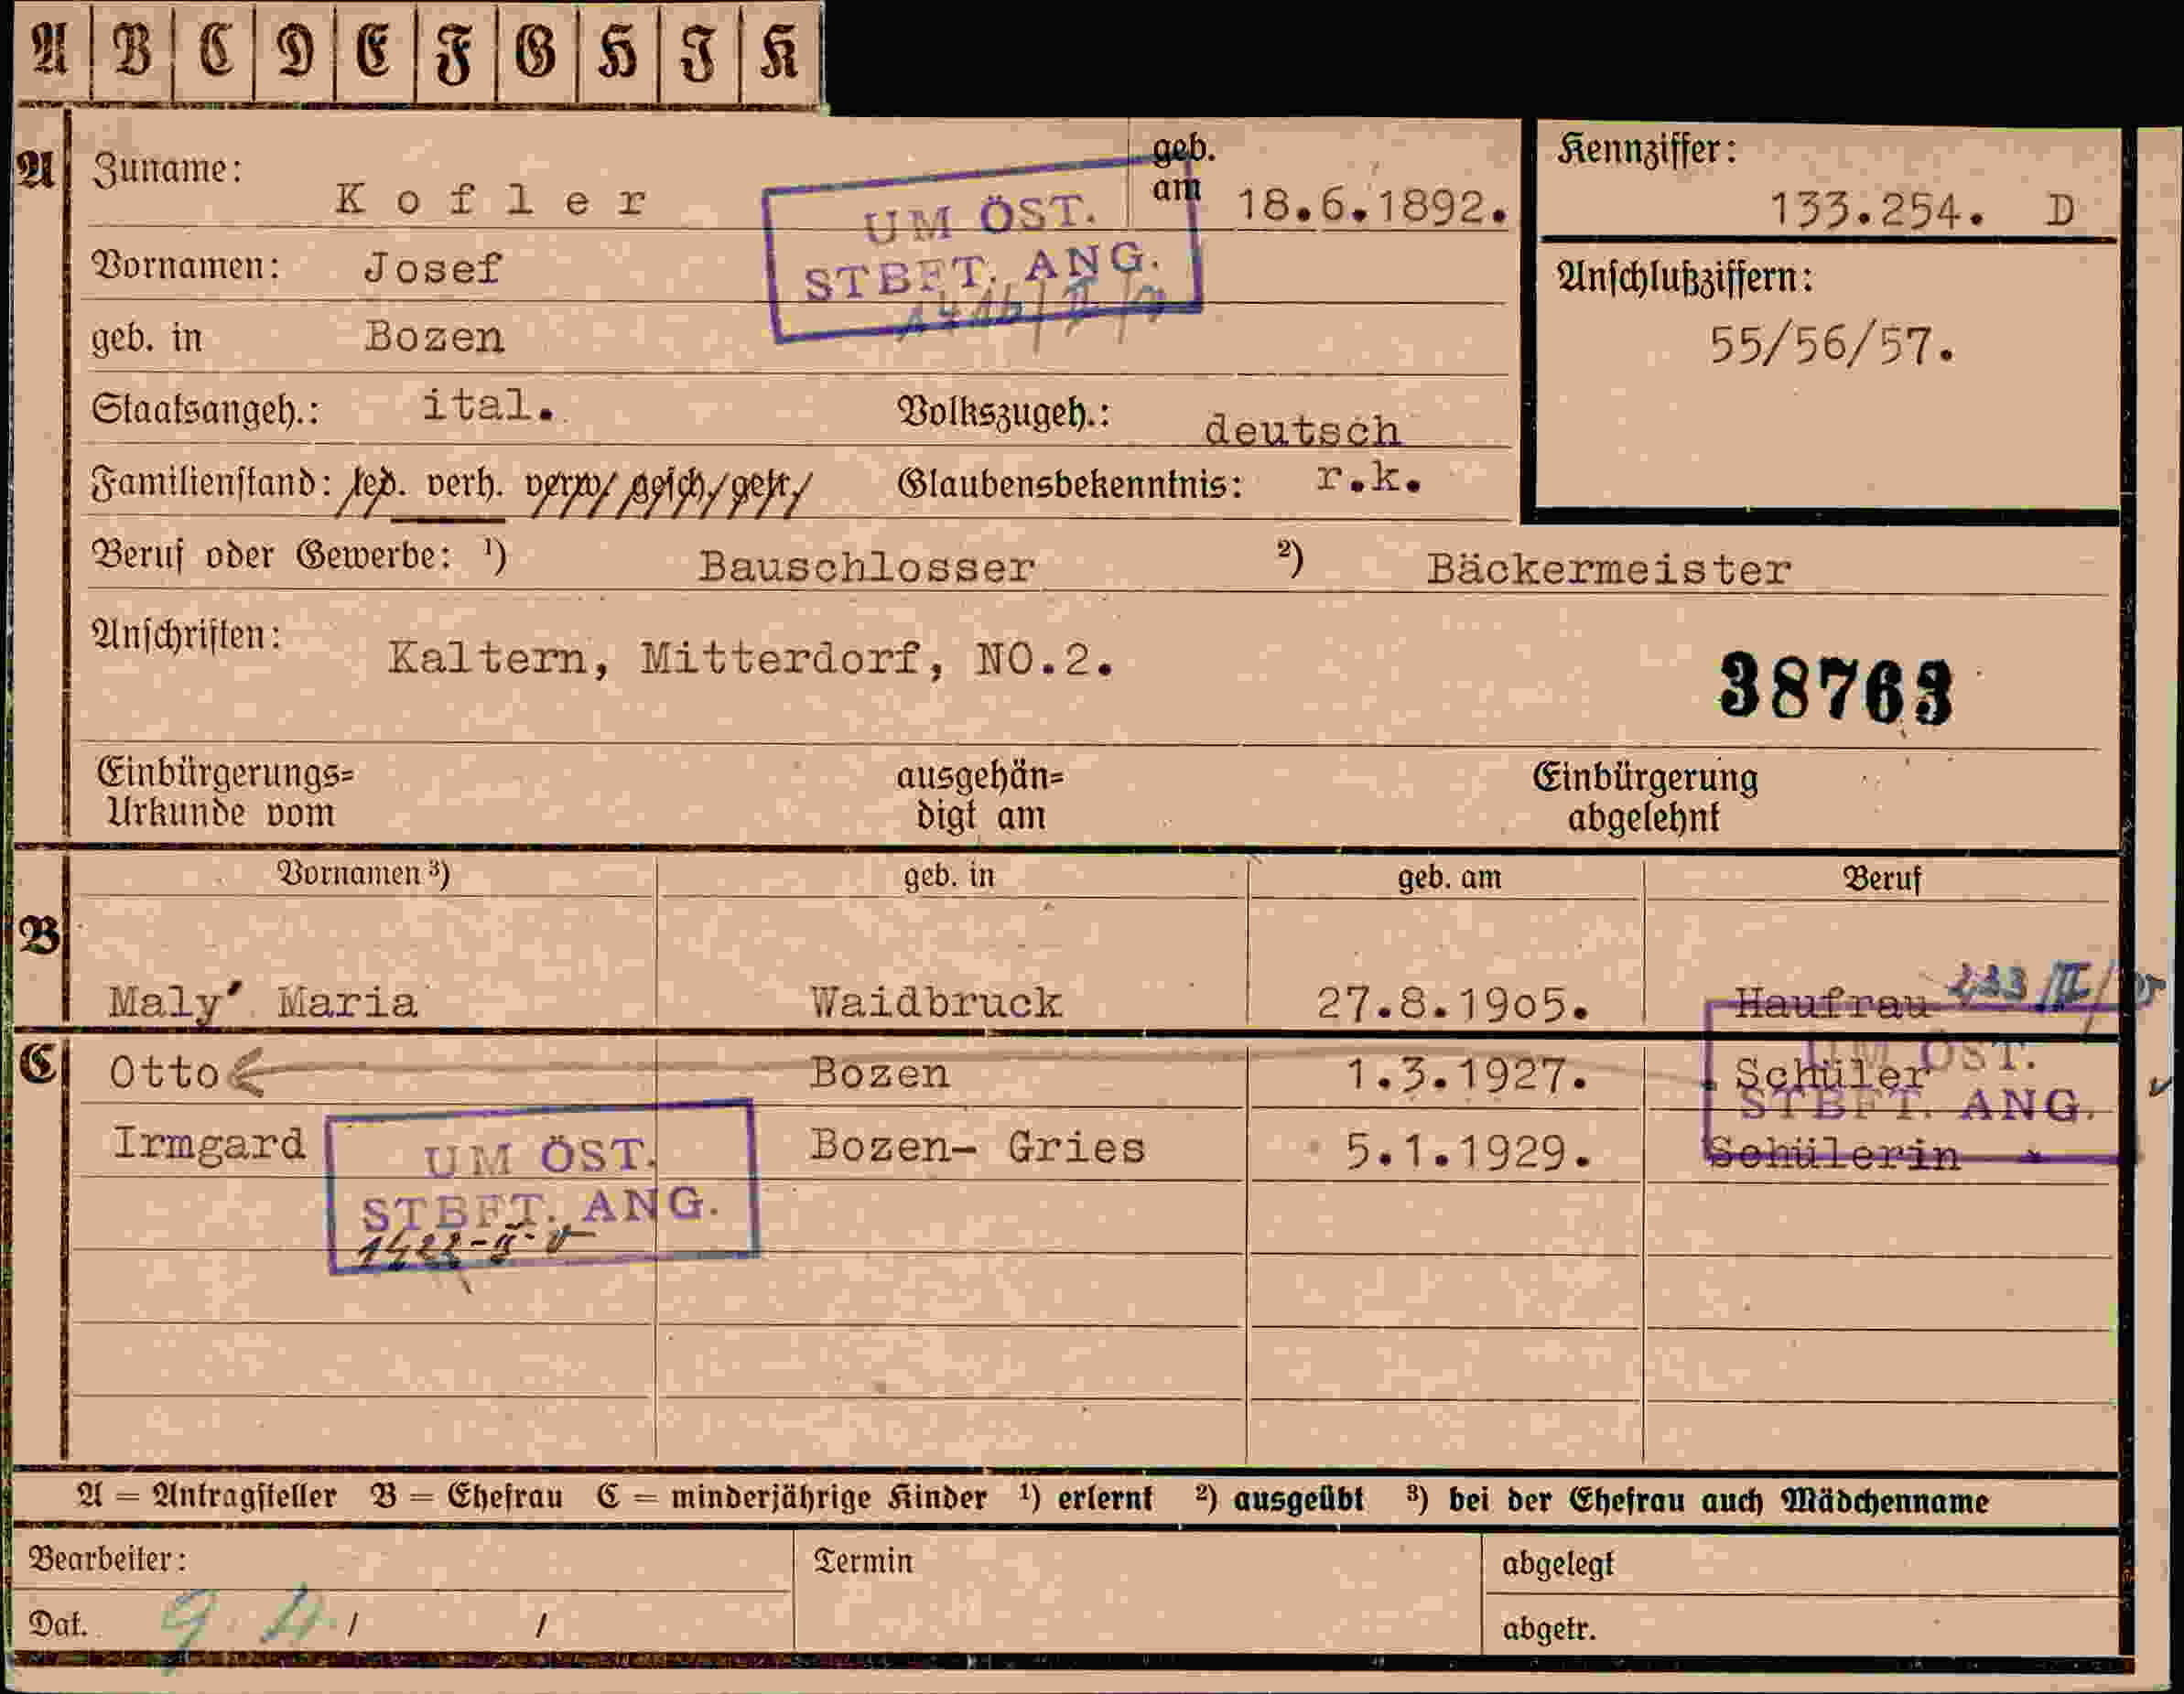 A B C D E F G H I K
A Zuname: Kofler geb. am 18.6.1892.
Kennziffer: 133.254. D
UM ÖST.
STBFT. ANG.
Vornamen: Josef
Anschlußziffern:
55/56/57.
geb. in Bozen
Staatsangeh.: ital. Volkszugeh.: deutsch
Familienstand: led. verh. verw. gesch. getr. Glaubensbekenntnis: r.k.
Beruf oder Gewerbe: ¹) Bauschlosser ²) Bäckermeister
Anschriften: Kaltern, Mitterdorf, NO.2.
38763
Einbürgerungs=
Urkunde vom
ausgehän=
digt am
Einbürgerung
abgelehnt
Vornamen ³) geb. in geb. am Beruf
B Maly' Maria Waidbruck 27.8.1905. Haufrau
C Otto Bozen 1.3.1927. Schüler
UM ÖST.
STBFT. ANG.
Irmgard Bozen- Gries 5.1.1929. Schülerin
UM ÖST.
STBFT. ANG.
A = Antragsteller B = Ehefrau C = minderjährige Kinder ¹) erlernt ²) ausgeübt ³) bei der Ehefrau auch Mädchenname
Bearbeiter: Termin abgelegt
Dat. 9. 4. / / abgetr.